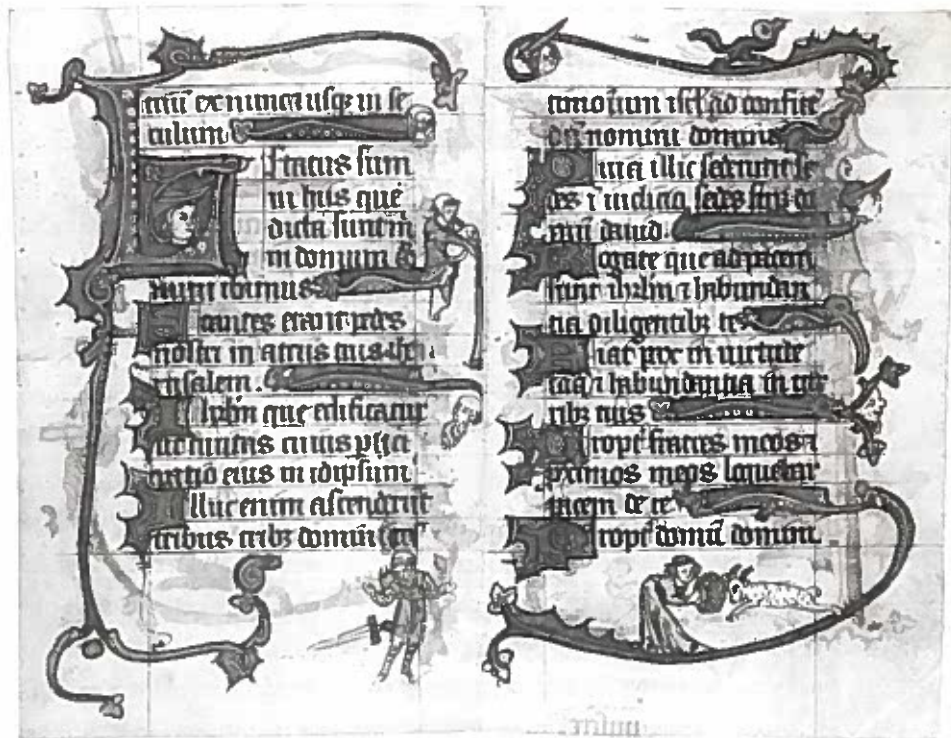 tuum ex nunc et usqꝫ in se
culum
Letatus sum
in hiis que
dicta sunt m
in domum do
mini ibimus
Stantes erant pedes
nostri in atriis tuis ihe
rusalem.
Ihrlm que edificatur
ut ciuitas cuius ptici
patio eius in idipsum
Illuc enim ascenderut
tribus tribꝫ domini
timonium isrl ad confite
dū nomini domini
Quia illic sederunt se
des ī iudicio sedes sup do
mum dauid.
Rogate que ad pacem
sunt ihrlm ⁊ habundan
tia diligentibꝫ te
Fiat pax in uirtute
tua ⁊ habundantia in tur
ribꝫ tuis
Propt fratres meos ⁊
pximos meos loquebar
pacem de te
Propt domū domini